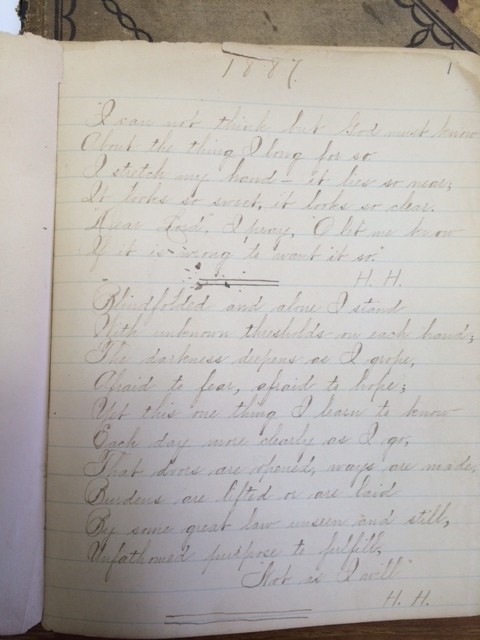 1887.
1
"I can not think but God must know
About the thing I long for so
I stretch my hand — it lies so near;
It looks so sweet, it looks so clear.
"Dear Lord," I pray, "O let me know
If it is wrong to want it so."
H. H.
Blindfolded and alone I stand
With unknown thesholds on each hand;
The darkness deepens as I grope,
Afraid to fear, afraid to hope;
Yet this one thing I learn to know
Each day more clearly as I go,
That doors are opened, ways are made,
Burdens are lifted or are laid
By some great law unseen and still,
Unfathomed purpose to fulfill,
"Not as I will"
H. H.